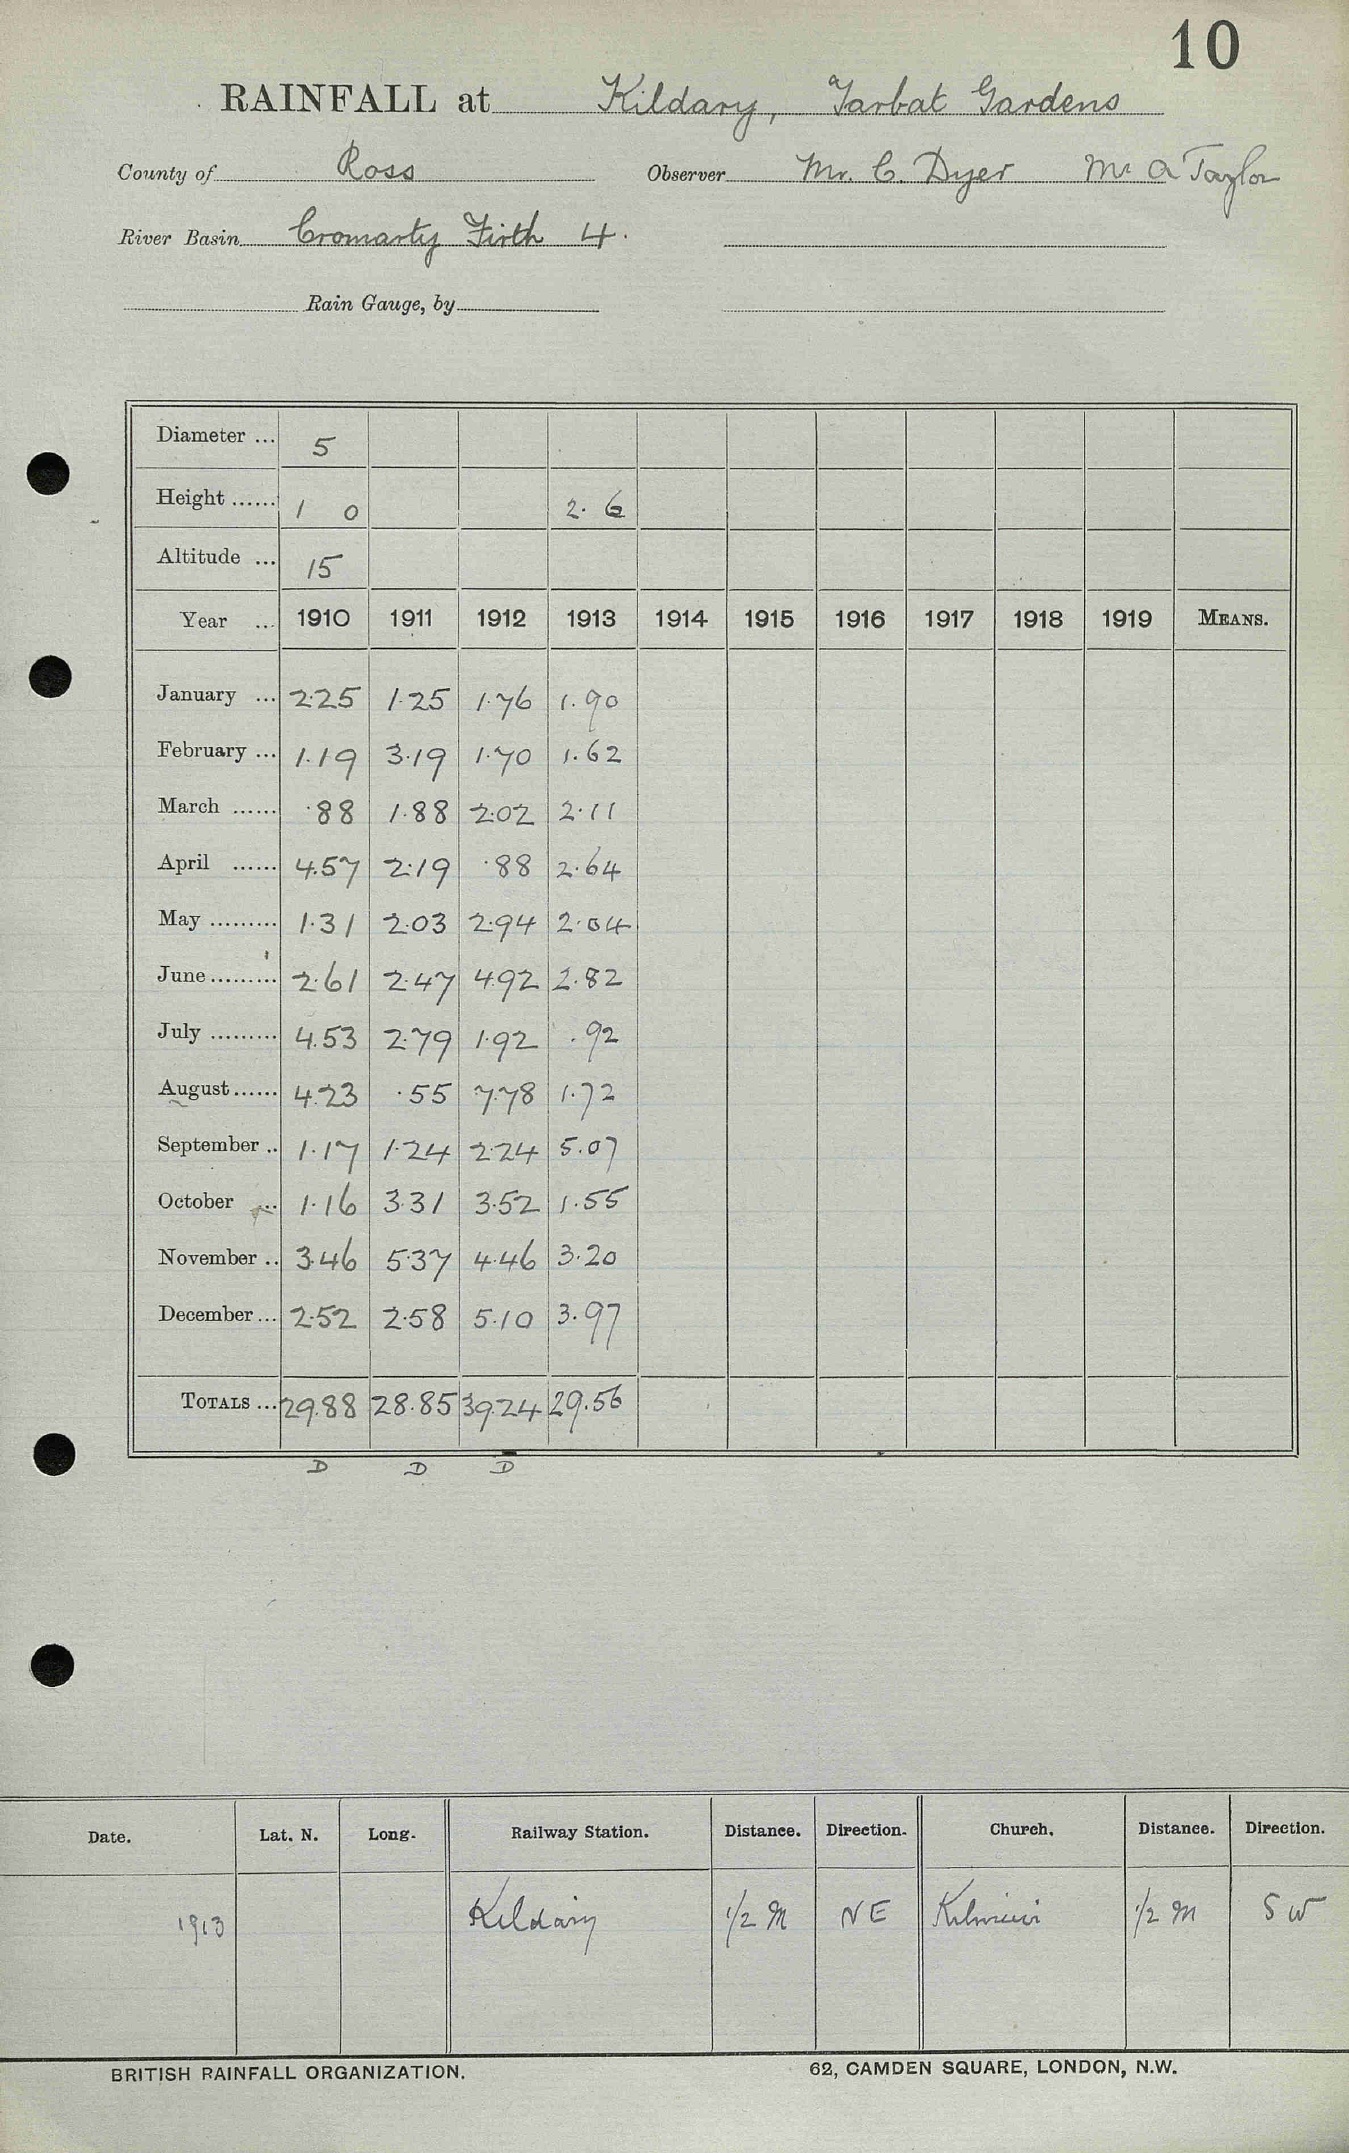 10
RAINFALL at Kildary, Tarbat Gardens
County of Ross Observer Mr. C. Dyer Mr A Taylor
River Basin Cromarty Firth 4.
Rain Gauge, by
Diameter ... 5
Height ...... 1 0 2. 6
Altitude ... 15
Year ... 1910 1911 1912 1913 1914 1915 1916 1917 1918 1919 MEANS.
January ... 2.25 1.25 1.76 1.90
February ... 1.19 3.19 1.70 1.62
March ...... .88 1.88 2.02 2.11
April ...... 4.57 2.19 .88 2.64
May ......... 1.31 2.03 2.94 2.04
June ......... 2.61 2.47 4.92 2.82
July ......... 4.53 2.79 1.92 .92
August ...... 4.23 .55 7.78 1.72
September .. 1.17 1.24 2.24 5.07
October ... 1.16 3.31 3.52 1.55
November .. 3.46 5.37 4.46 3.20
December ... 2.52 2.58 5.10 3.97
TOTALS ... 29.88 28.85 39.24 29.56
D D D
Date. Lat. N. Long. Railway Station. Distance. Direction. Church. Distance. Direction.
1913 Kildary 1/2 M NE 1/2 M SW
BRITISH RAINFALL ORGANIZATION. 62, CAMDEN SQUARE, LONDON, N.W.